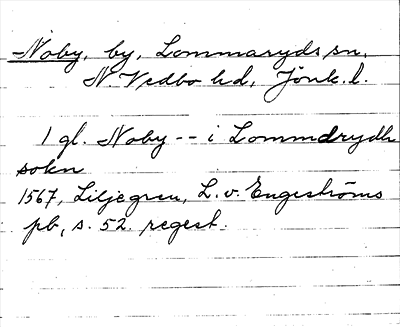 Noby, by, Lommaryds sn.
N. Vedbo hd, Jönk. l.
1 gl. Noby -- i Lommdrydh
sokn
1567, Liljegren, L. v. Engeströms
pb, s. 52. regest.